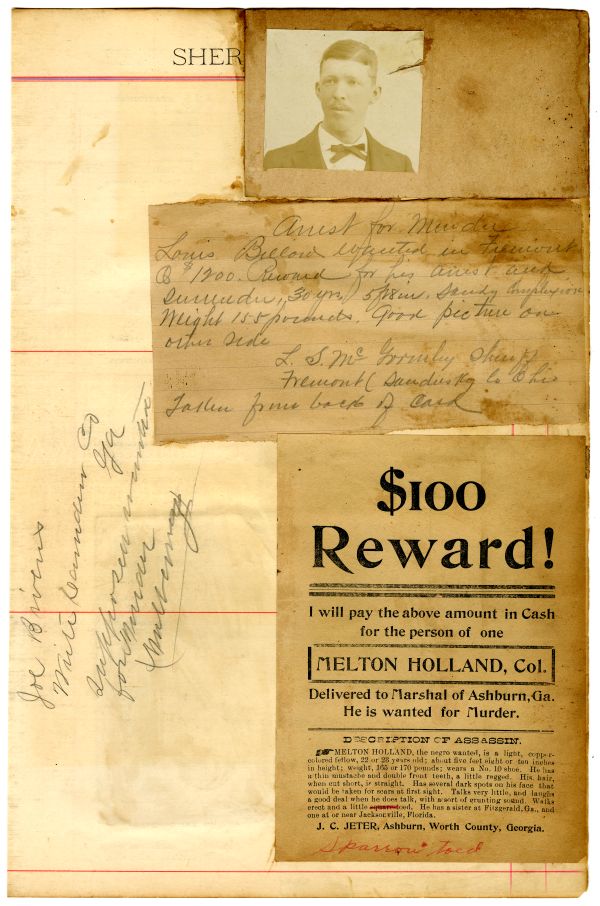 SHER
Arrest for Murder
Louis Bellow Wanted in Fremont
O $1200. Reward for his arrest and
surrender, 30 yrs, 5ft8in. Sandy Complexion
Weight 155 pounds. Good picture on
other side
L. S. Mc Gormley Sheriff
Fremont (Sandusky Co Ohio
Taken from back of Card
Joe Bivens
Write Camden Co
Ga
supposed wanted
for Murder
$100
Reward!
I will pay the above amount in Cash
for the person of one
MELTON HOLLAND, Col.
Delivered to Marshal of Ashburn, Ga.
He is wanted for Murder.
DESCRIPTION OF ASSASSIN.
MELTON HOLLAND, the negro wanted, is a light, copper-
colored fellow, 22 or 23 years old; about five feet eight or ten inches
in height; weight, 165 or 170 pounds; wears a No. 10 shoe. He has
a thin mustache and double front teeth, a little ragged. His hair,
when cut short, is straight. Has several dark spots on his face that
would be taken for scars at first sight. Talks very little, and laughs
a good deal when he does talk, with a sort of grunting sound. Walks
erect and a little square-toed. He has a sister at Fitzgerald, Ga., and
one at or near Jacksonville, Florida.
J. C. JETER, Ashburn, Worth County, Georgia.
Sparrow toed